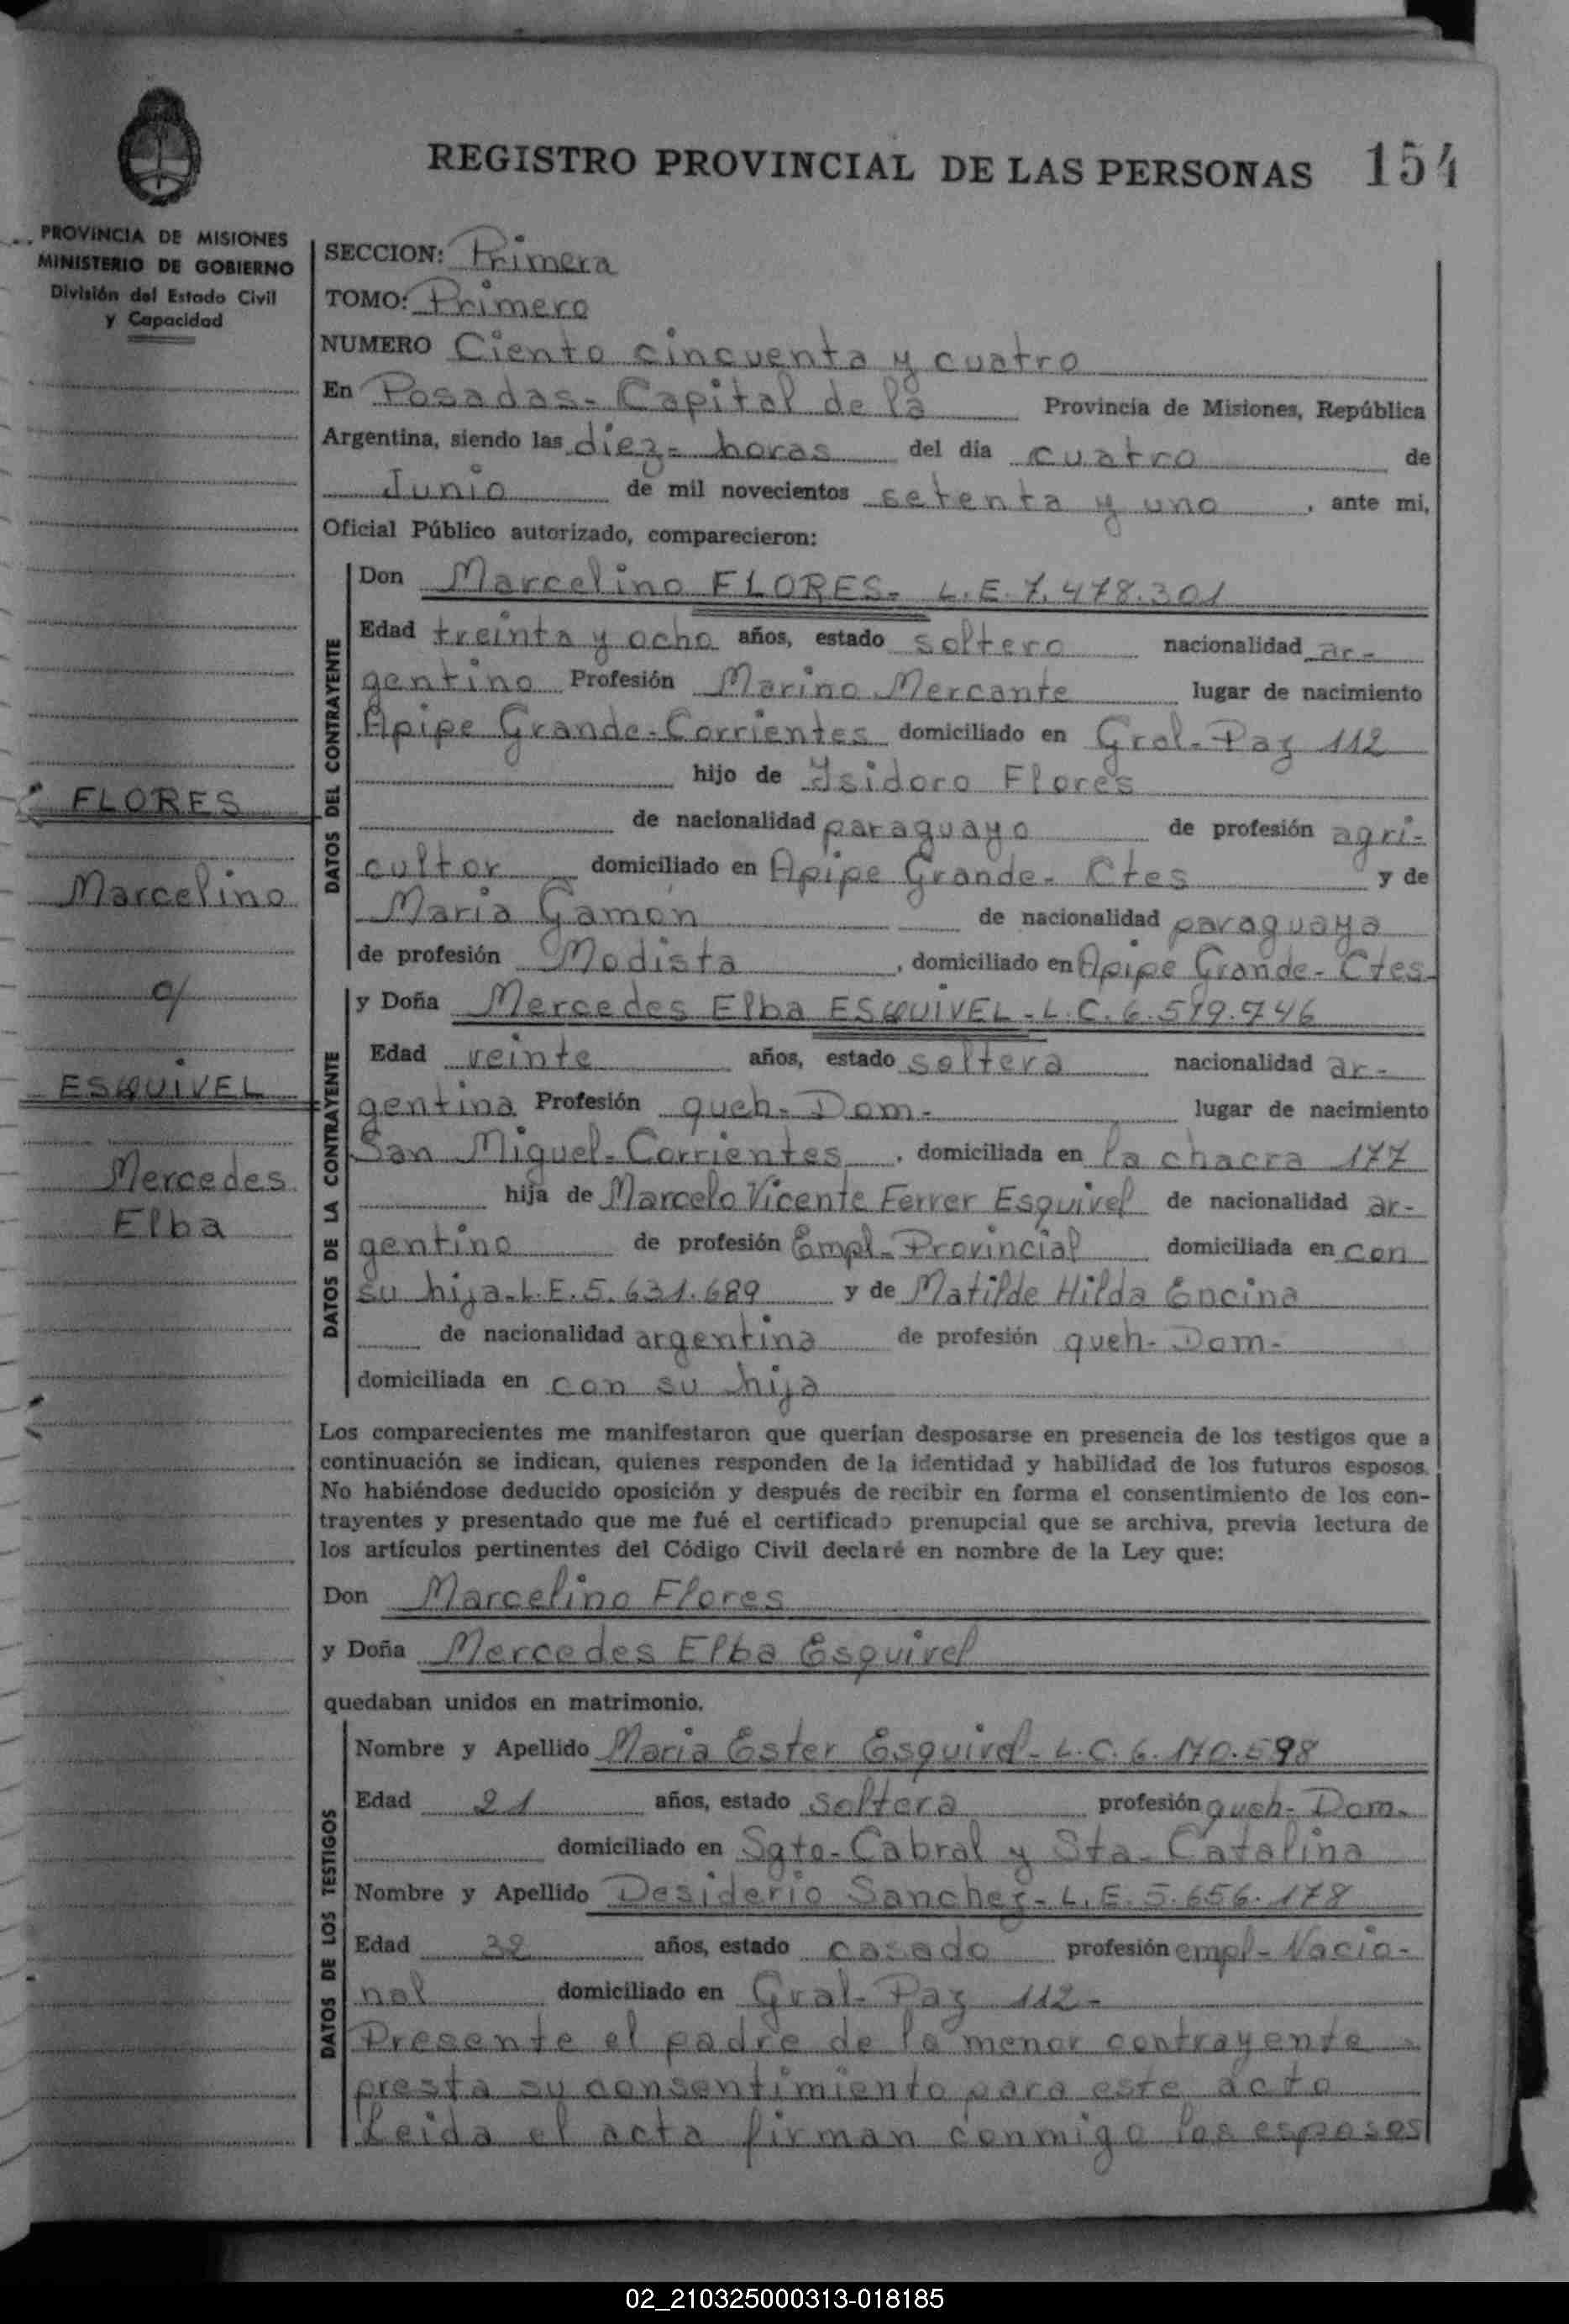 REGISTRO PROVINCIAL DE LAS PERSONAS 154
PROVINCIA DE MISIONES
MINISTERIO DE GOBIERNO
División del Estado Civil
y Capacidad
FLORES
Marcelino
c/
ESQUIVEL
Mercedes
Elba
SECCION: Primera
TOMO: Primero
NUMERO Ciento cincuenta y cuatro
En Posadas- Capital de la Provincia de Misiones, República
Argentina, siendo las diez- horas del día cuatro de
Junio de mil novecientos setenta y uno, ante mi,
Oficial Público autorizado, comparecieron:
DATOS DEL CONTRAYENTE
Don Marcelino FLORES- L.E. 7.478.301
Edad treinta y ocho años, estado soltero nacionalidad ar-
gentino Profesión Marino Mercante lugar de nacimiento
Apipe Grande-Corrientes domiciliado en Gral-Paz 112
hijo de Isidoro Flores
de nacionalidad paraguayo de profesión agri-
cultor domiciliado en Apipe Grande- Ctes y de
Maria Gamon de nacionalidad paraguaya
de profesión Modista, domiciliado en Apipe Grande- Ctes-
DATOS DE LA CONTRAYENTE
y Doña Mercedes Elba ESQUIVEL-L.C. 6.519.746
Edad veinte años, estado soltera nacionalidad ar-
gentina Profesión queh- Dom- lugar de nacimiento
San Miguel-Corrientes, domiciliada en la chacra 177
hija de Marcelo Vicente Ferrer Esquivel de nacionalidad ar-
gentino de profesión Empl- Provincial domiciliada en con
su hija-L.E. 5.631.689 y de Matilde Hilda Encina
de nacionalidad argentina de profesión queh- Dom-
domiciliada en con su hija
Los comparecientes me manifestaron que querían desposarse en presencia de los testigos que a
continuación se indican, quienes responden de la identidad y habilidad de los futuros esposos.
No habiéndose deducido oposición y después de recibir en forma el consentimiento de los con-
trayentes y presentado que me fué el certificado prenupcial que se archiva, previa lectura de
los artículos pertinentes del Código Civil declaré en nombre de la Ley que:
Don Marcelino Flores
y Doña Mercedes Elba Esquivel
quedaban unidos en matrimonio.
DATOS DE LOS TESTIGOS
Nombre y Apellido Maria Ester Esquivel- L.C. 6.170.598
Edad 21 años, estado soltera profesión queh- Dom-
domiciliado en Sgto-Cabral y Sta- Catalina
Nombre y Apellido Desiderio Sanchez- L.E. 5.656.178
Edad 32 años, estado casado profesión empl- Nacio-
nal domiciliado en Gral- Paz 112-
Presente el padre de la menor contrayente
presta su consentimiento para este acto
Leida el acta firman conmigo los esposos
02_210325000313-018185